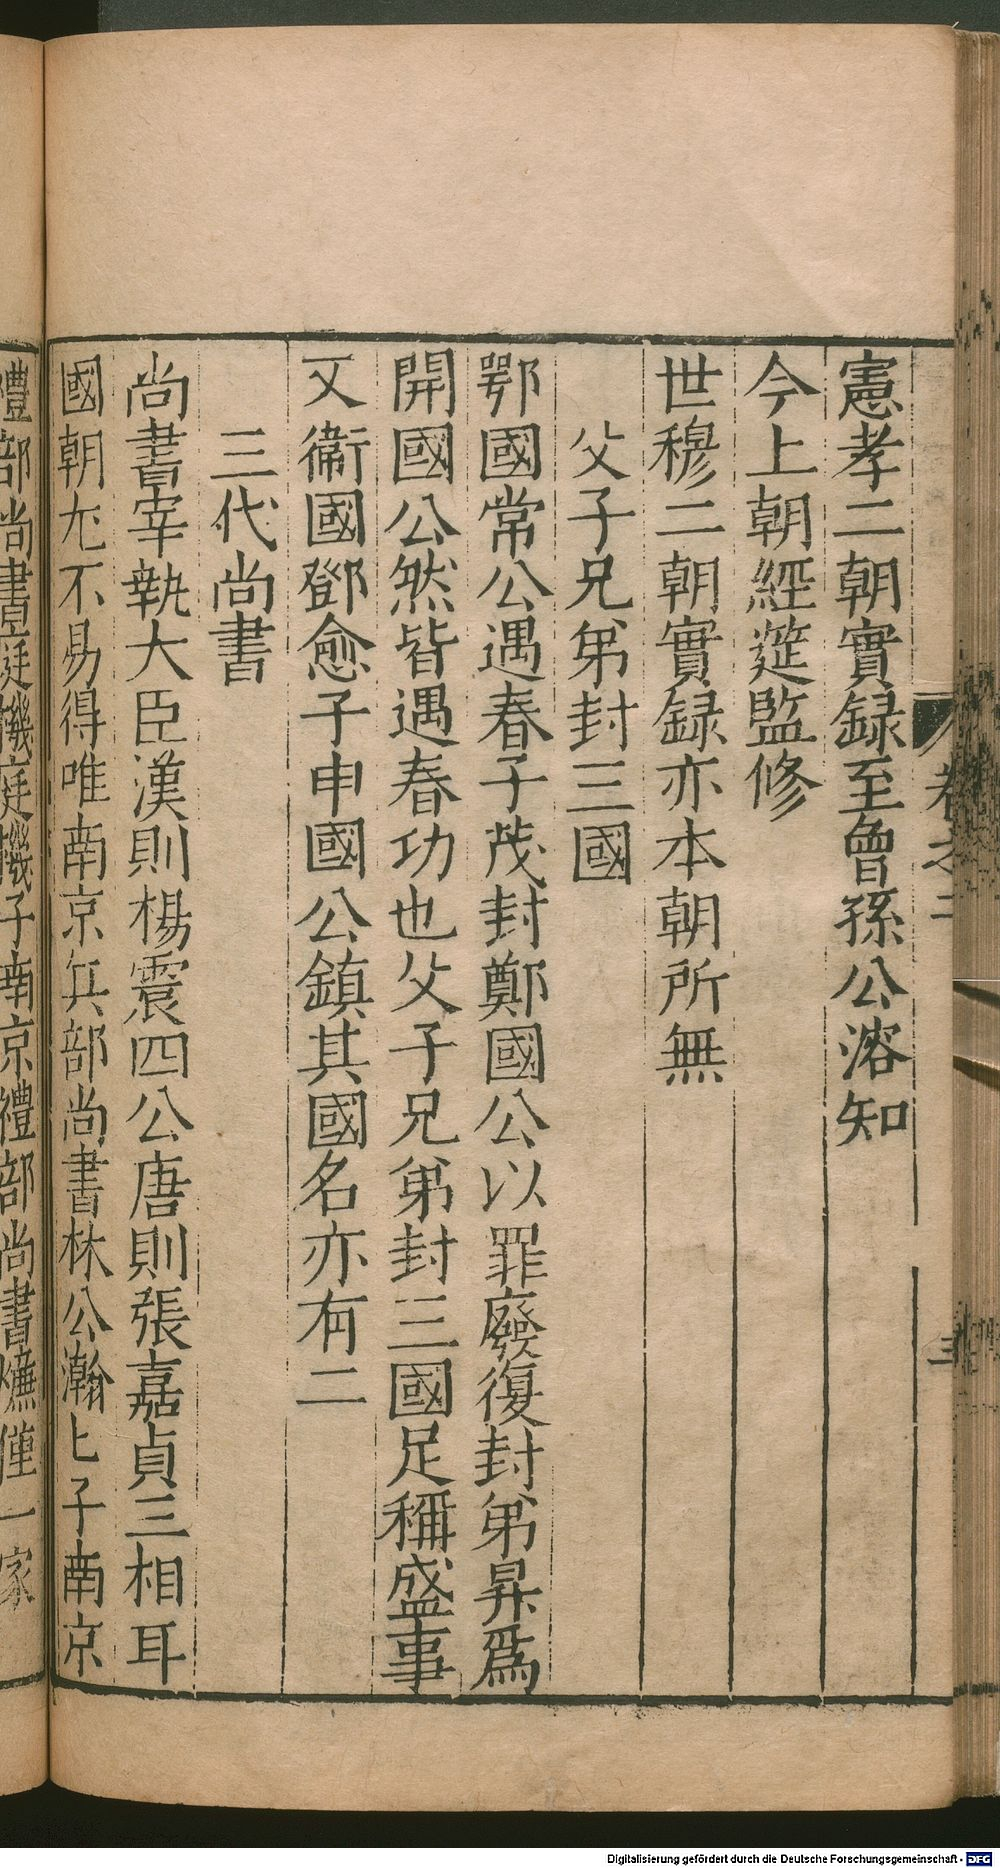 憲孝二朝實録至曾孫公溶知
今上朝經筵監修
世穆二朝實録亦本朝所無
父子兄弟封三國
鄂國常公遇春子茂封鄭國公以罪廢復封弟昇爲
開國公然皆遇春功也父子兄弟封三國足稱盛事
又衞國鄧愈子申國公鎮其國名亦有二
三代尚書
尚書宰執大臣漢則楊震四公唐則張嘉貞三相耳
國朝尤不易得唯南京兵部尚書林公瀚上子南京
禮部尚書庭㭿庭機子南京禮部尚書燫僅一家
卷之二
三
Digitalisierung gefördert durch die Deutsche Forschungsgemeinschaft - DFG